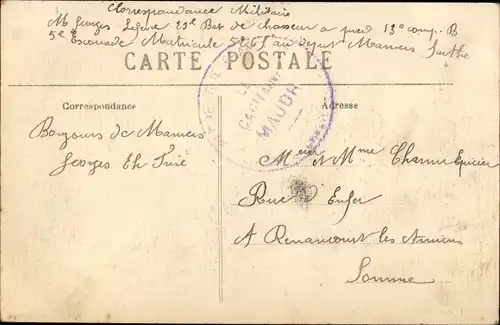 Correspondance Militaire
Mr Georges Lefevre 29e Bat de chasseur a pied 13e comp. B
5e Escouade Matricule au depot Mamers Sarthe
CARTE POSTALE
CAPITAINE
MAJOR
Correspondance
Adresse
Bonjours de Mamers
Georges
Mcier et Mme Charun Epicier
Rue d'Enfer
A Renancourt les Amiens
Somme